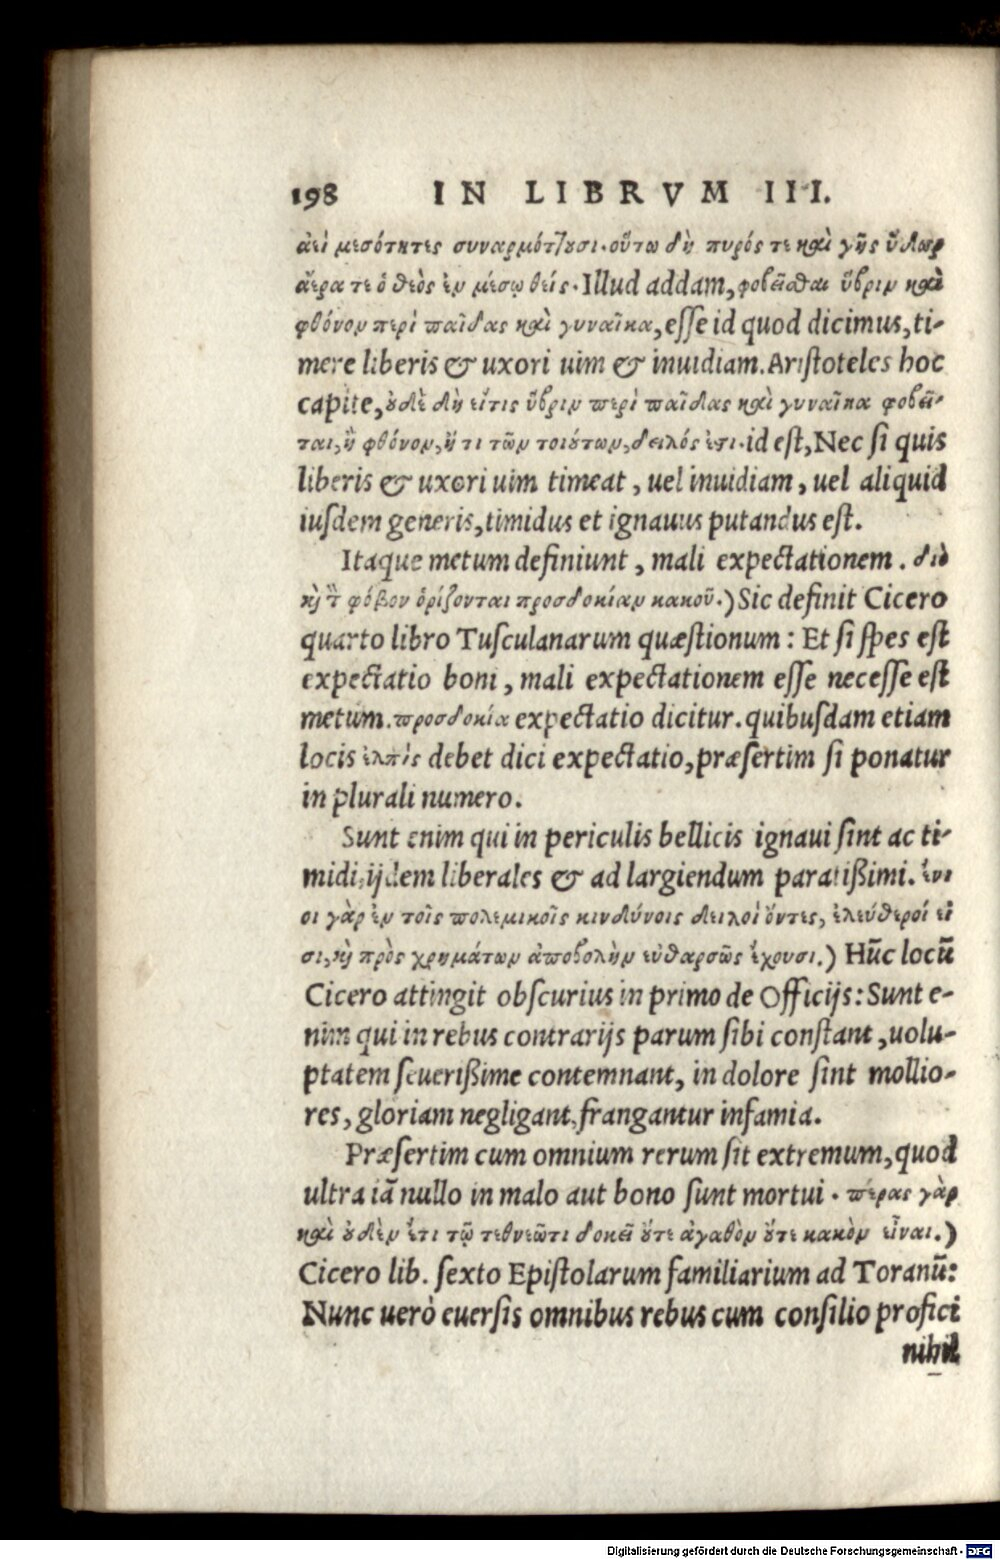 198 IN LIBRVM III.
ἀεὶ μεσότητες συναρμότ7ουσι. οὕτω δὴ πυρός τε καὶ γῆς ὕδωρ
ἄερα τε ὁ θεὸς ἐν μέσῳ θείς. Illud addam, φοβεῖσθαι ὕβριν καὶ
φθόνον περὶ παῖδας καὶ γυναῖκα, esse id quod dicimus, ti-
mere liberis & uxori uim & inuidiam. Aristoteles hoc
capite, οὐδὲ δὴ εἴτις ὕβριν περὶ παῖδας καὶ γυναῖκα φοβεῖ-
ται, ἢ φθόνον, ἤ τι τῶν τοιούτων, δειλός ἐστι. id est, Nec si quis
liberis & uxori uim timeat, uel inuidiam, uel aliquid
iusdem generis, timidus et ignauus putandus est.
Itaque metum definiunt, mali expectationem. διὸ
καὶ τὸν φόβον ὁρίζονται προσδοκίαν κακοῦ.) Sic definit Cicero
quarto libro Tusculanarum quæstionum: Et si spes est
expectatio boni, mali expectationem esse necesse est
metum. προσδοκία expectatio dicitur. quibusdam etiam
locis ἐλπὶς debet dici expectatio, præsertim si ponatur
in plurali numero.
Sunt enim qui in periculis bellicis ignaui sint ac ti-
midi, ijdem liberales & ad largiendum paratißimi. ἔνι
οι γὰρ ἐν τοῖς πολεμικοῖς κινδύνοις δειλοὶ ὄντες, ἐλεύθεροί εἰ
σι, καὶ πρὸς χρημάτων ἀποβολὴν εὐθαρσῶς ἔχουσι.) Hūc locū
Cicero attingit obscurius in primo de Officijs: Sunt e-
nim qui in rebus contrarijs parum sibi constant, uolu-
ptatem seuerißime contemnant, in dolore sint mollio-
res, gloriam negligant, frangantur infamia.
Præsertim cum omnium rerum sit extremum, quod
ultra iā nullo in malo aut bono sunt mortui. πέρας γὰρ
καὶ οὐδὲν ἔτι τῷ τεθνεῶτι δοκεῖ οὔτε ἀγαθὸν οὔτε κακὸν εἶναι.)
Cicero lib. sexto Epistolarum familiarium ad Toranū:
Nunc uerò euersis omnibus rebus cum consilio profici
nihil
Digitalisierung gefördert durch die Deutsche Forschungsgemeinschaft - DFG